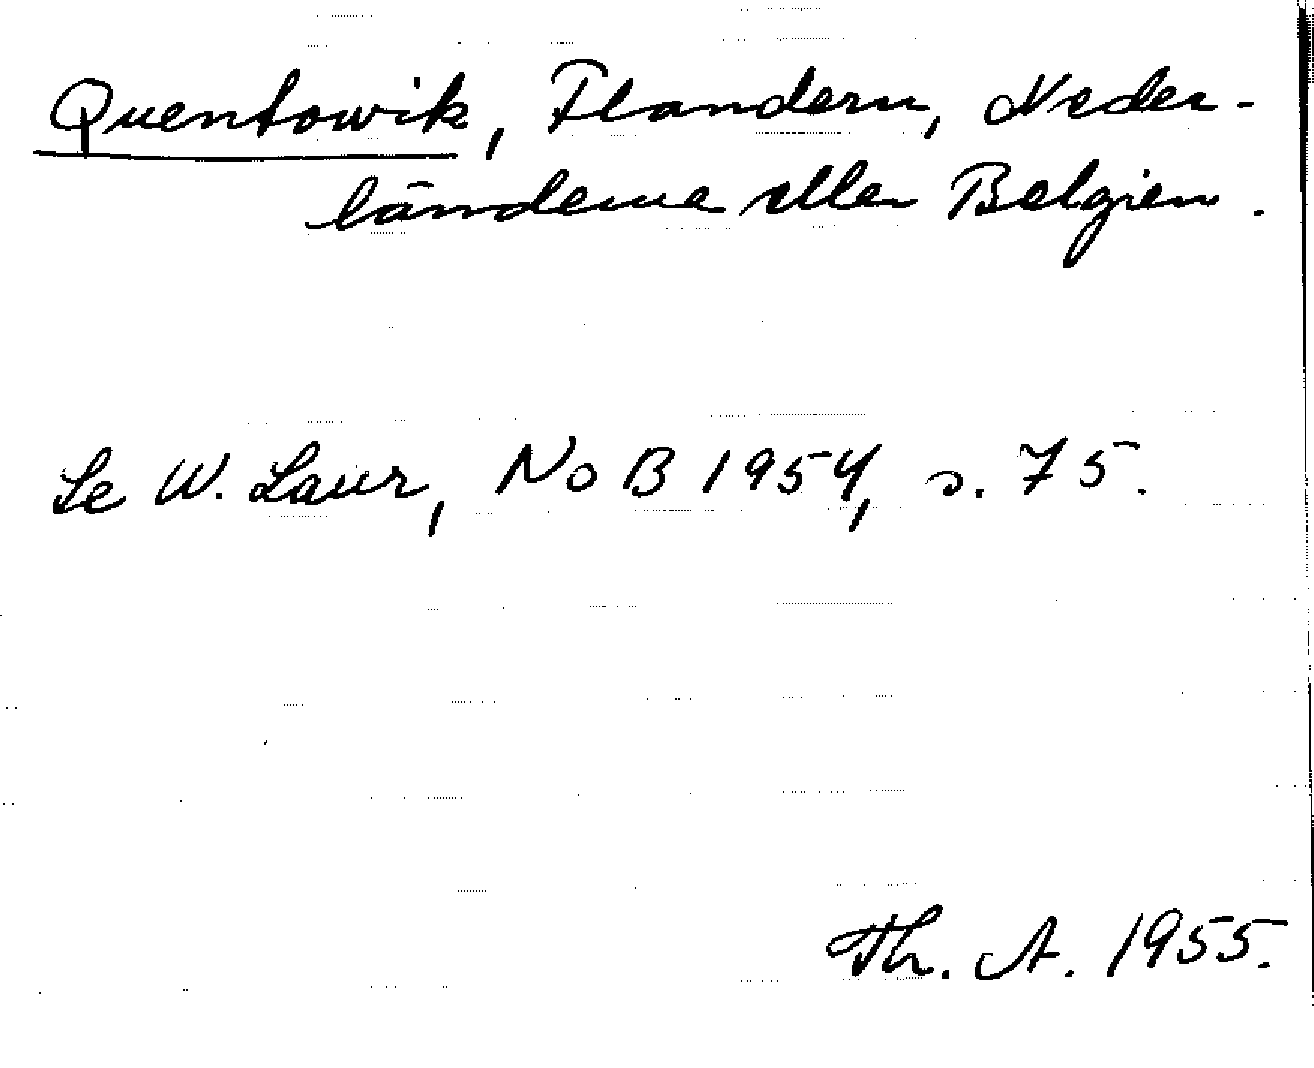 Quentowik, Flandern, Neder-
länderna eller Belgien.
Se W. Laur, NoB 1954, s. 75.
Th. A. 1955.